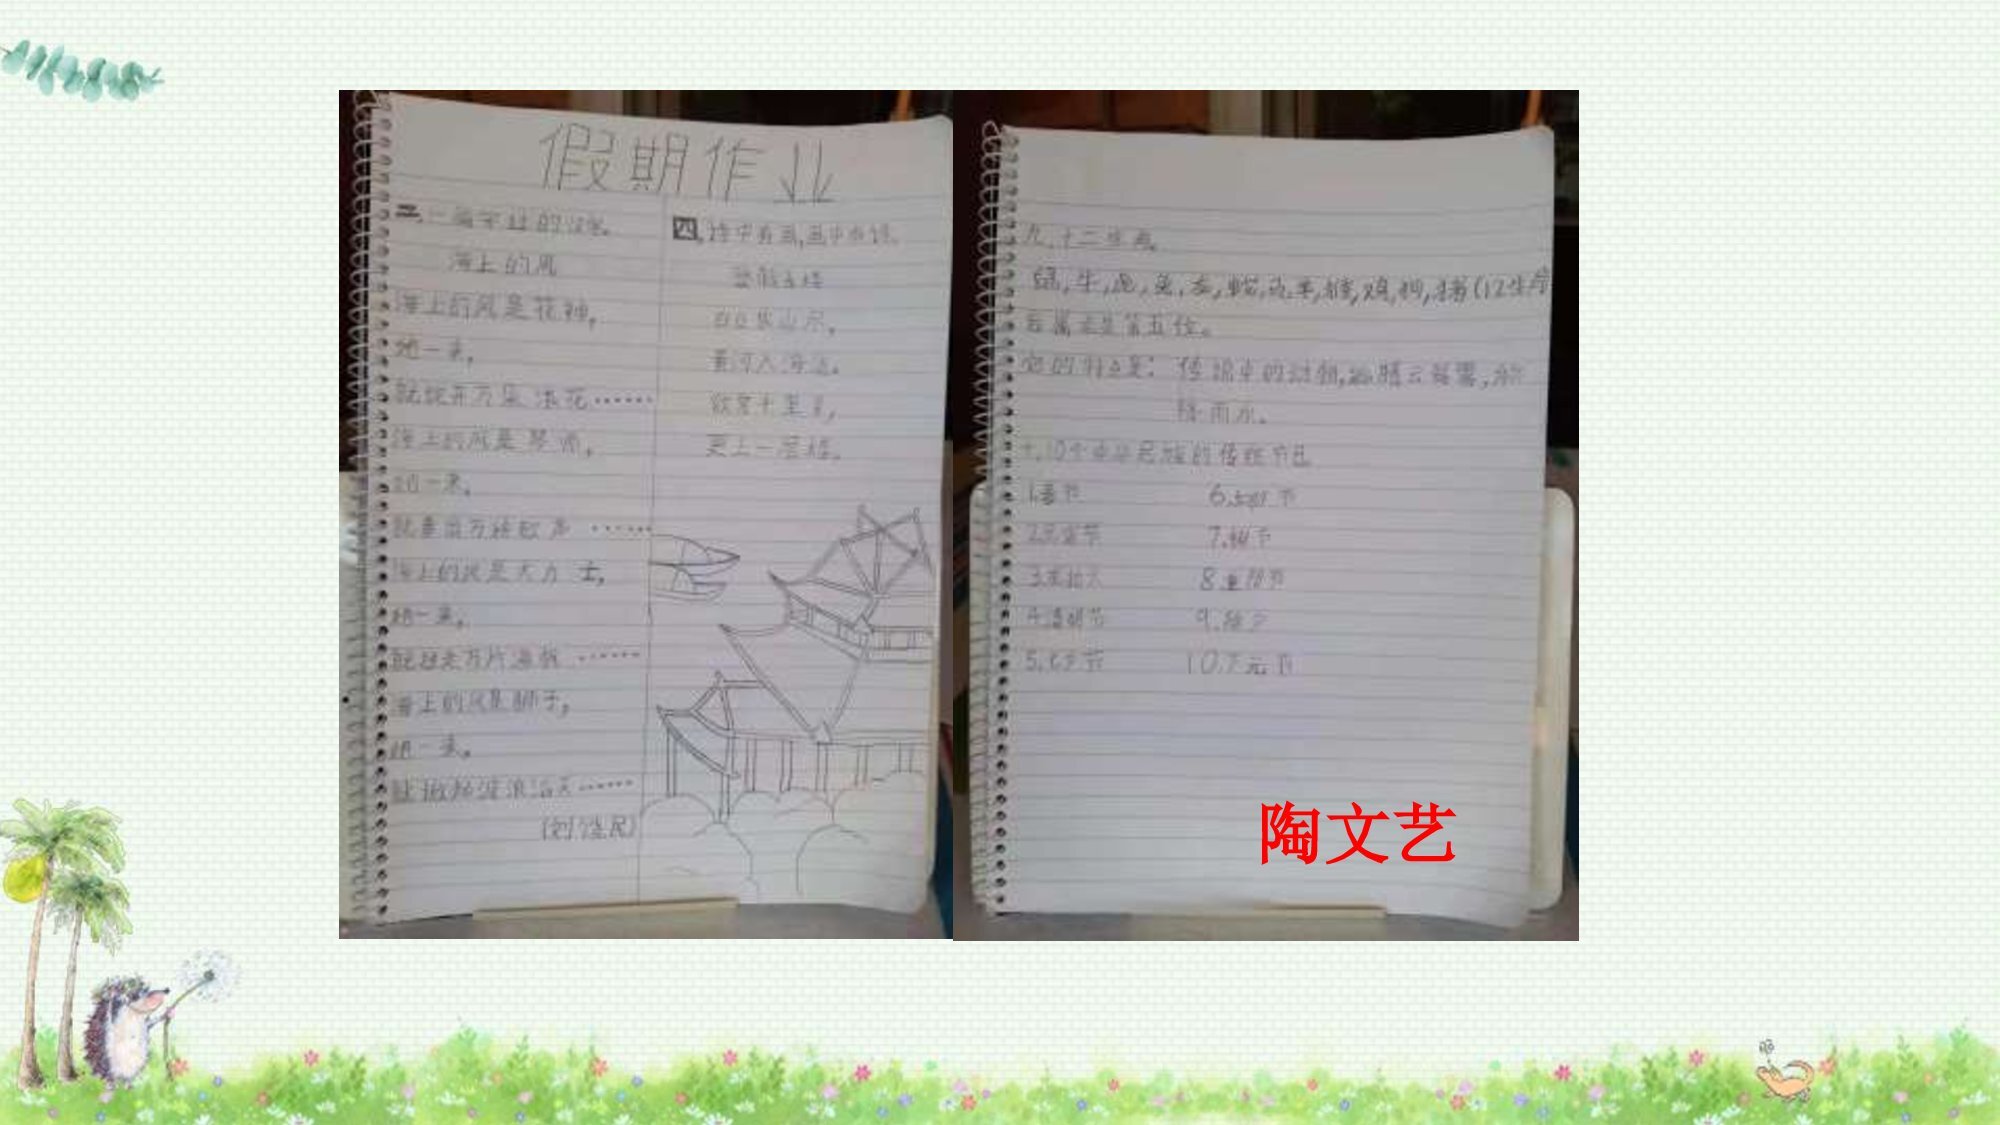 假期作业
海上的风
海上的风是花神，
她一来，
就绽开万朵浪花……
海上的风是琴师，
她一来，
就奏出万种歌声……
海上的风是大力士，
她一来，
就送走万片渔帆……
海上的风是狮子，
她一来，
就掀起波浪滔天……
四、诗中有画，画中有诗。
登鹳雀楼
白日依山尽，
黄河入海流。
欲穷千里目，
更上一层楼。
九、十二生肖
鼠，牛，虎，兔，龙，蛇，马，羊，猴，鸡，狗，猪（12生肖
传说中的动物，能腾云驾雾，
降雨水。
十、10个中华民族的传统节日
1.春节
2.元宵节
4.清明节
5.七夕节
7.秋节
8.重阳节
9.除夕
陶文艺